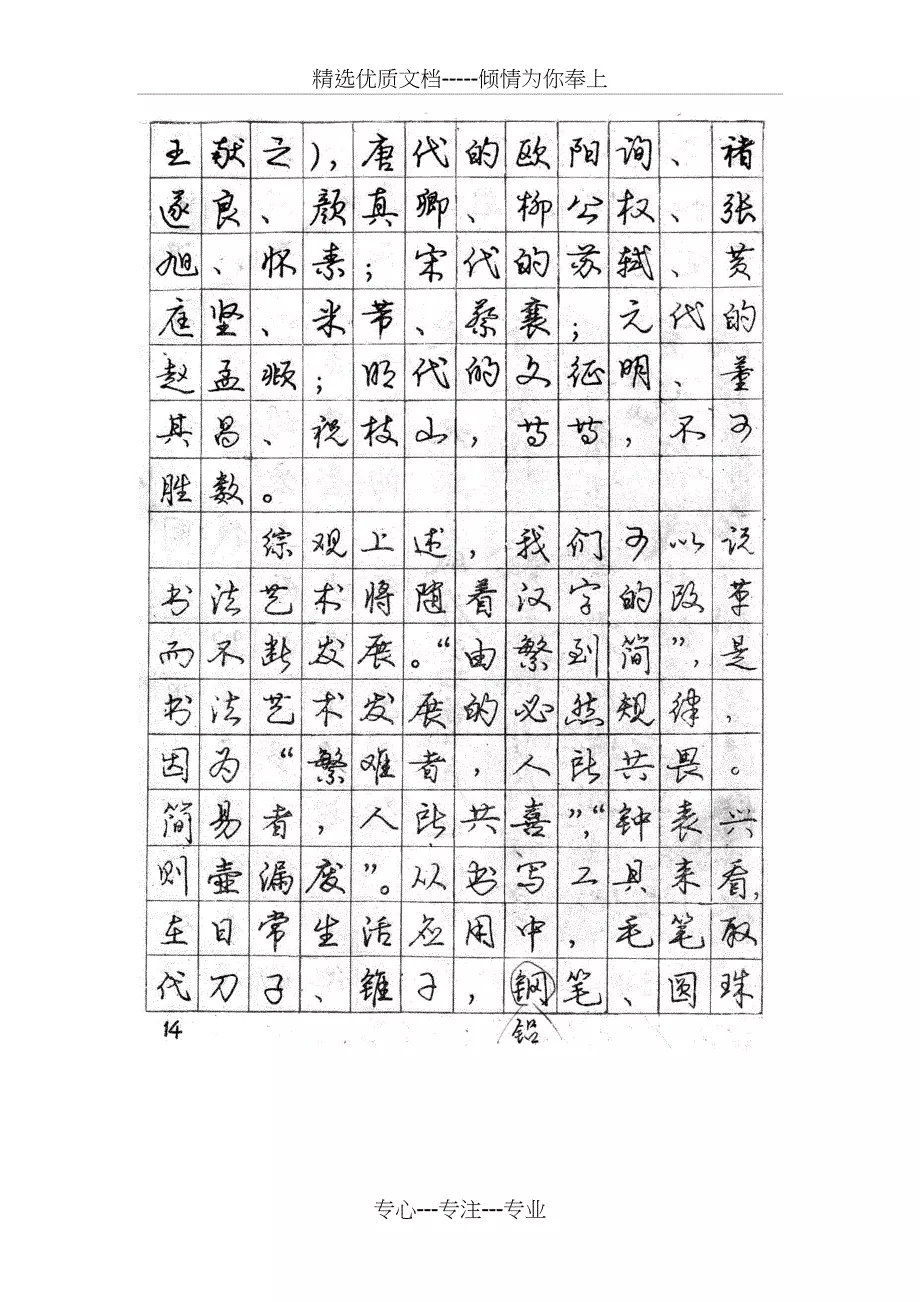 精选优质文档-----倾情为你奉上
王献之），唐代的欧阳询、褚
遂良、颜真卿、柳公权、张
旭、怀素；宋代的苏轼、黄
庭坚、米芾、蔡襄；元代的
赵孟頫；明代的文征明、董
其昌、祝枝山，等等，不可
胜数。
综观上述，我们可以说
书法艺术将随着汉字的改革
而不断发展。“由繁到简”，是
书法艺术发展的必然规律，
因为“繁难者，人所共畏。
简易者，人所共喜”，“钟表兴
则壶漏废”。从书写工具来看，
在日常生活应用中，毛笔取
代刀子、锥子，钢笔、圆珠
14
铅
专心---专注---专业